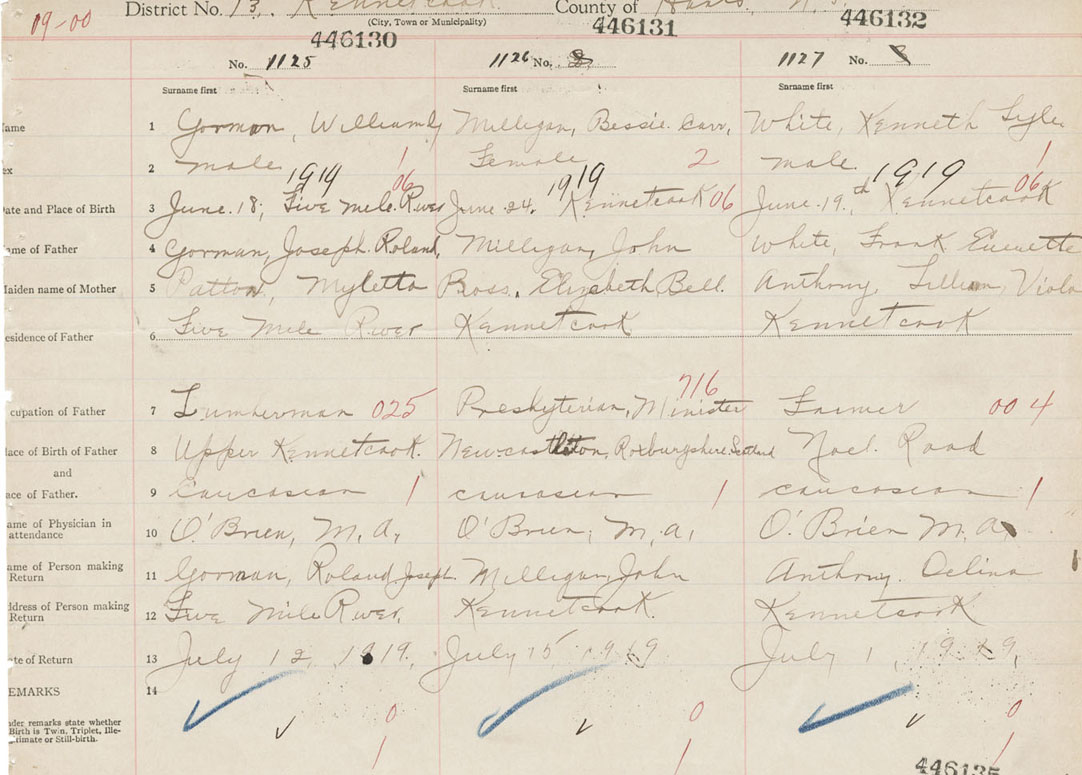 District No. 13. Kennetcook County of Hants, N.S.
(City, Town or Municipality)
09-00
446130 446131 446132
No. 1125 1126 No. 8 1127 No. 8
Surname first Surname first Surname first
ame 1 Gorman, William Milligan, Bessie. Carr, White, Kenneth Lyle
ex 2 male 1 Female 2 male. 1
1919 1919 1919
ate and Place of Birth 3 June. 18; Five Mile. River 06 June. 24. Kennetcook 06 June. 19. Kennetcook 06
ame of Father 4 Gorman, Joseph. Roland, Milligan, John White, Frank Everette
Maiden name of Mother 5 Patton, Myletta Ross, Elizabeth Bell. Anthony, Lillian, Viola
esidence of Father 6 Five Mile River Kennetcook Kennetcook
cupation of Father 7 Lumberman 025 Presbyterian, Minister 716 Farmer 00 4
lace of Birth of Father 8 Upper Kennetcook. Newcastleton, Roxburgshire. Scotland Noel. Road
and
ace of Father. 9 Caucasian 1 caucasian 1 caucasian 1
ame of Physician in
attendance 10 O'Brien, M, A, O'Brien, M, A, O'Brien M, A,
ame of Person making
Return 11 Gorman, Roland Joseph. Milligan, John Anthony. Delina
ddress of Person making
Return 12 Five Mile River, Kennetcook. Kennetcook
te of Return 13 July 12, 1919, July 15 1919 July 1, 1919,
EMARKS 14
nder remarks state whether
Birth is Twin, Triplet, Ille-
itimate or Still-birth.
0 0 0
1 1 1
446135